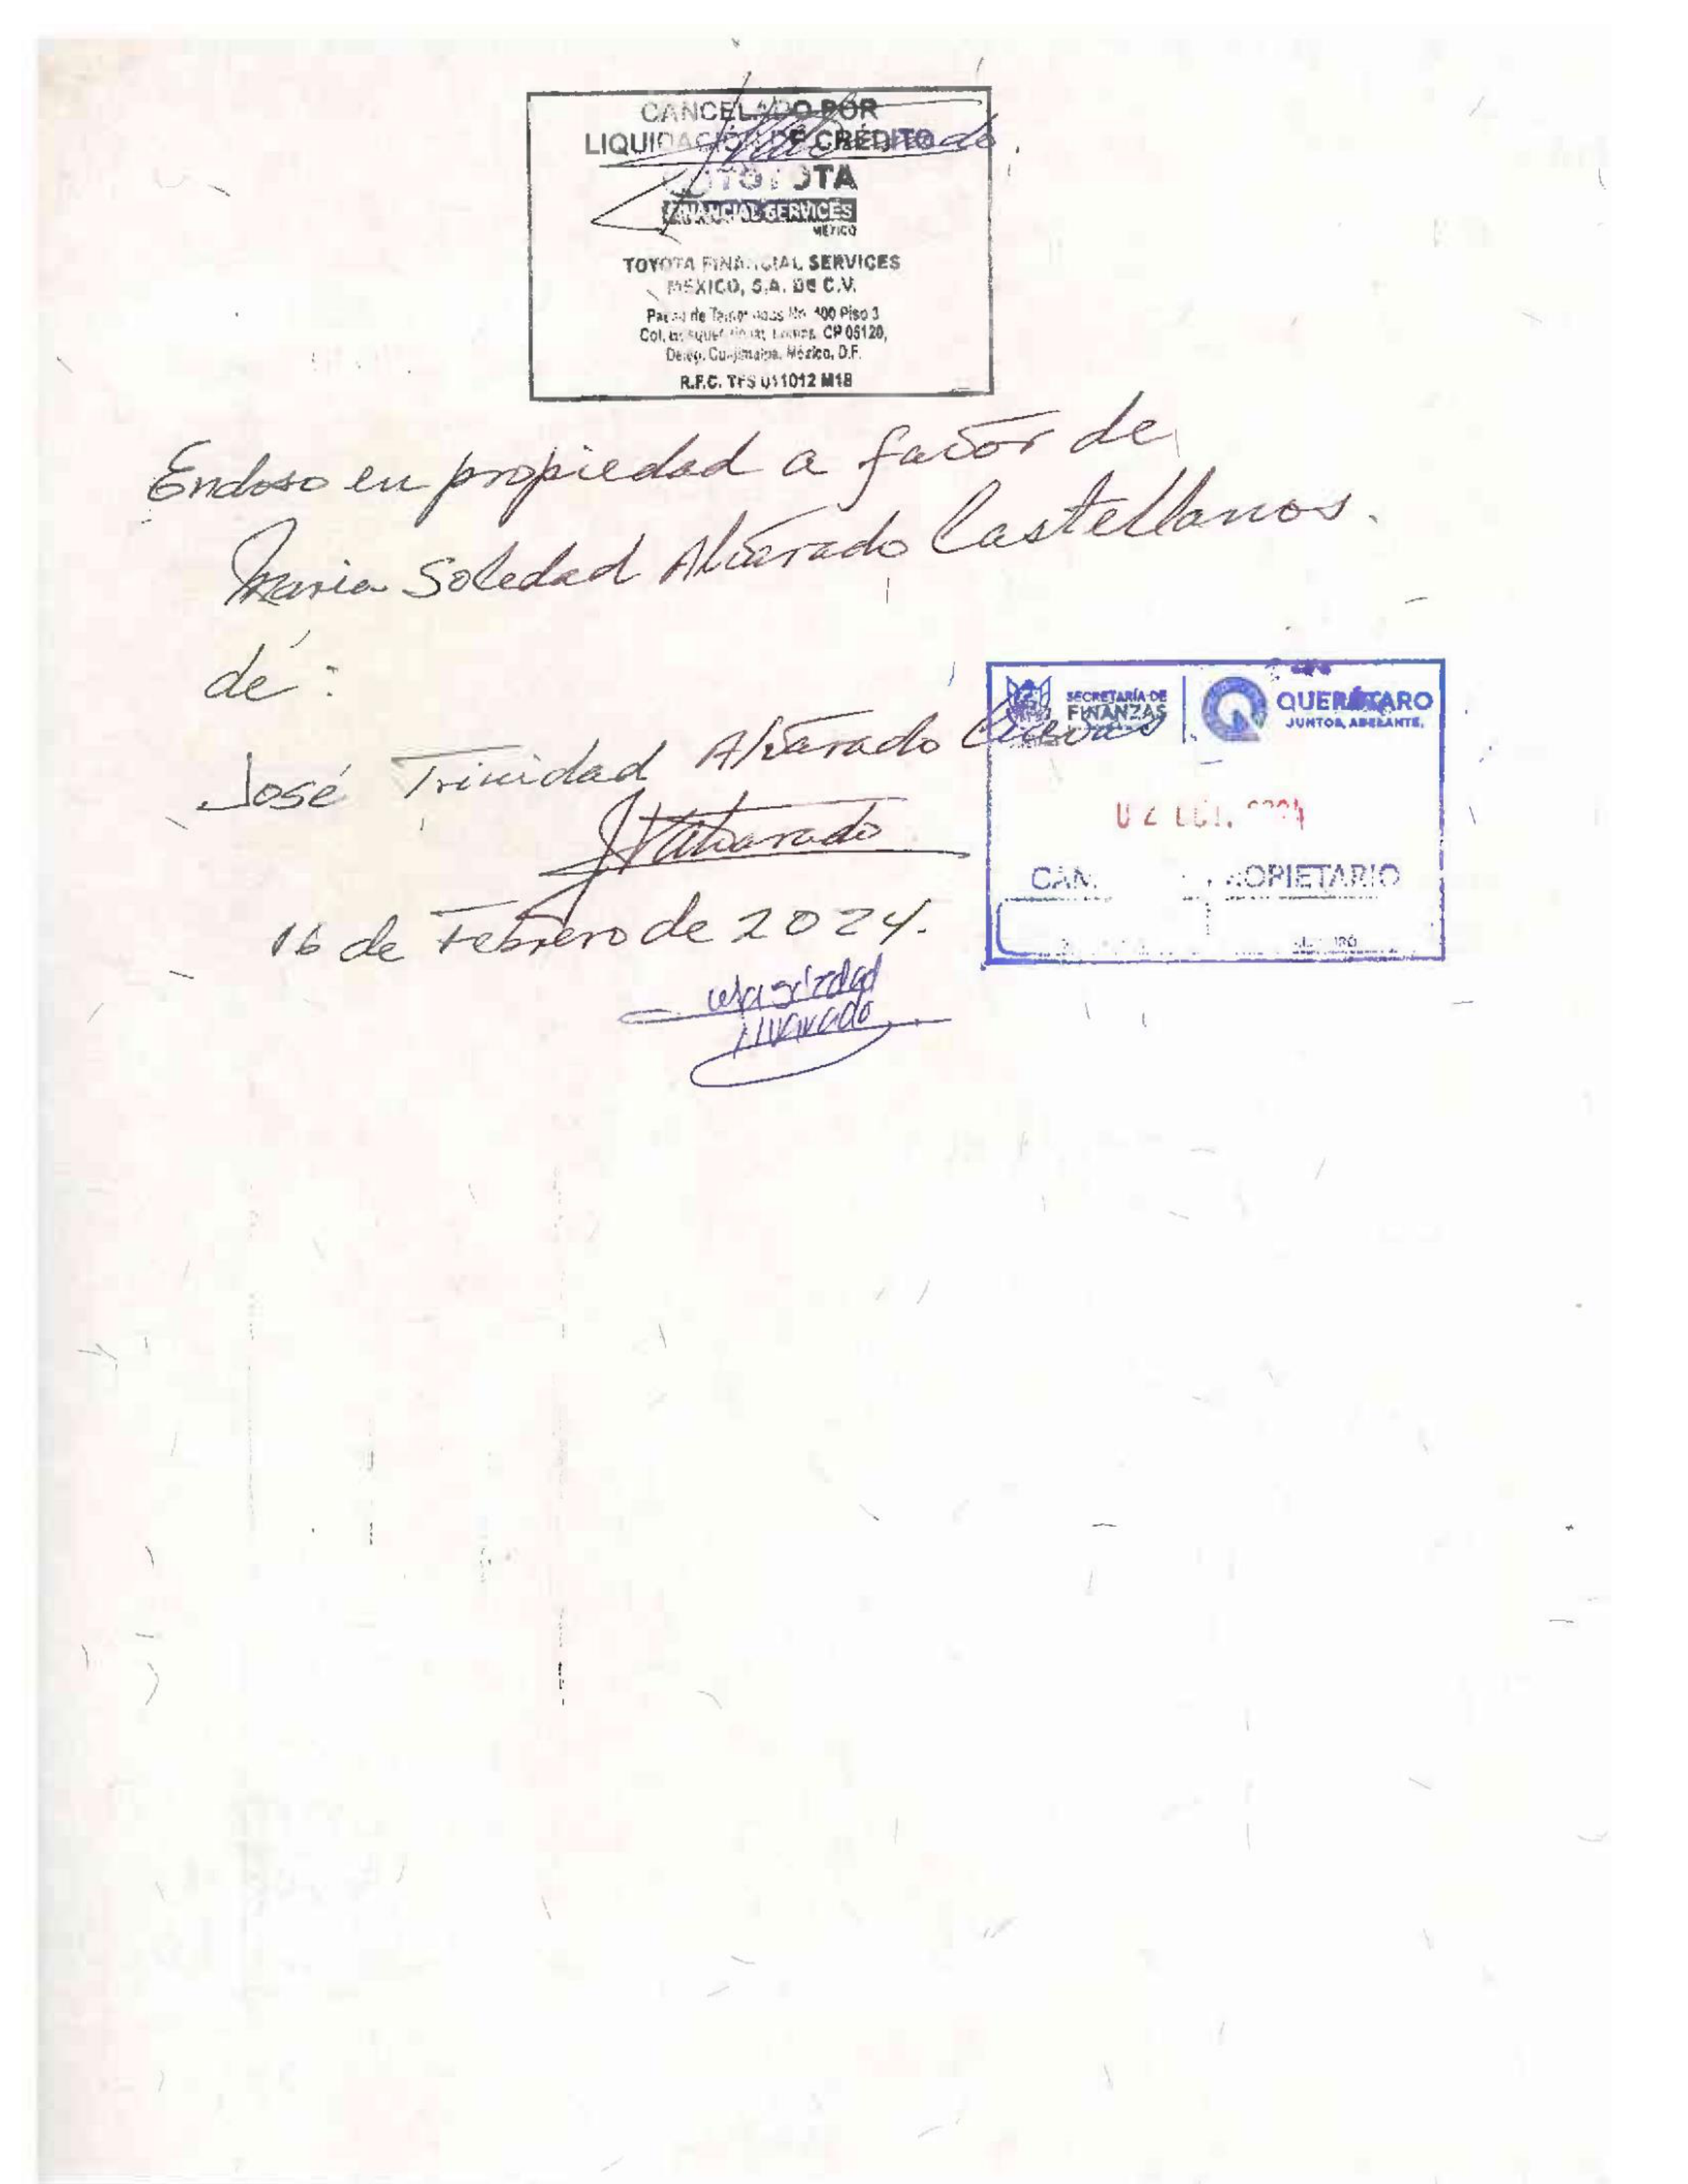 CANCELADO POR
LIQUIDACIÓN DE CRÉDITO
TOYOTA
FINANCIAL SERVICES
MÉXICO
TOYOTA FINANCIAL SERVICES
MÉXICO, S.A. DE C.V.
de No. 400 Piso 3
Col. CP 05120,
Deleg. Cuajimalpa, México, D.F.
R.F.C. TFS 011012 M18
Endoso en propiedad a favor de
Maria Soledad Alvarado Castellanos.
de:
José Trinidad Alvarado Cuevas
JTAlvarado
16 de Febrero de 2024.
Ma Soledad
Alvarado
SECRETARÍA DE
FINANZAS
QUERÉTARO
JUNTOS, ADELANTE.
02
PROPIETARIO